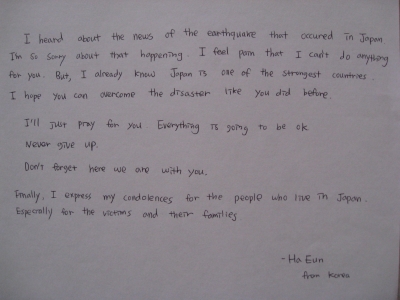 I heard about the news of the earthquake that occured in Japan
I'm so sorry about that happening. I feel pain that I can't do anything
for you. But, I already know Japan is one of the strongest countries.
I hope you can overcome the disaster like you did before.
I'll just pray for you. Everything is going to be ok
Never give up.
Don't forget here we are with you.
Finally, I express my condolences for the people who live in Japan.
Especially for the victims and their families.
- Ha Eun
from Korea